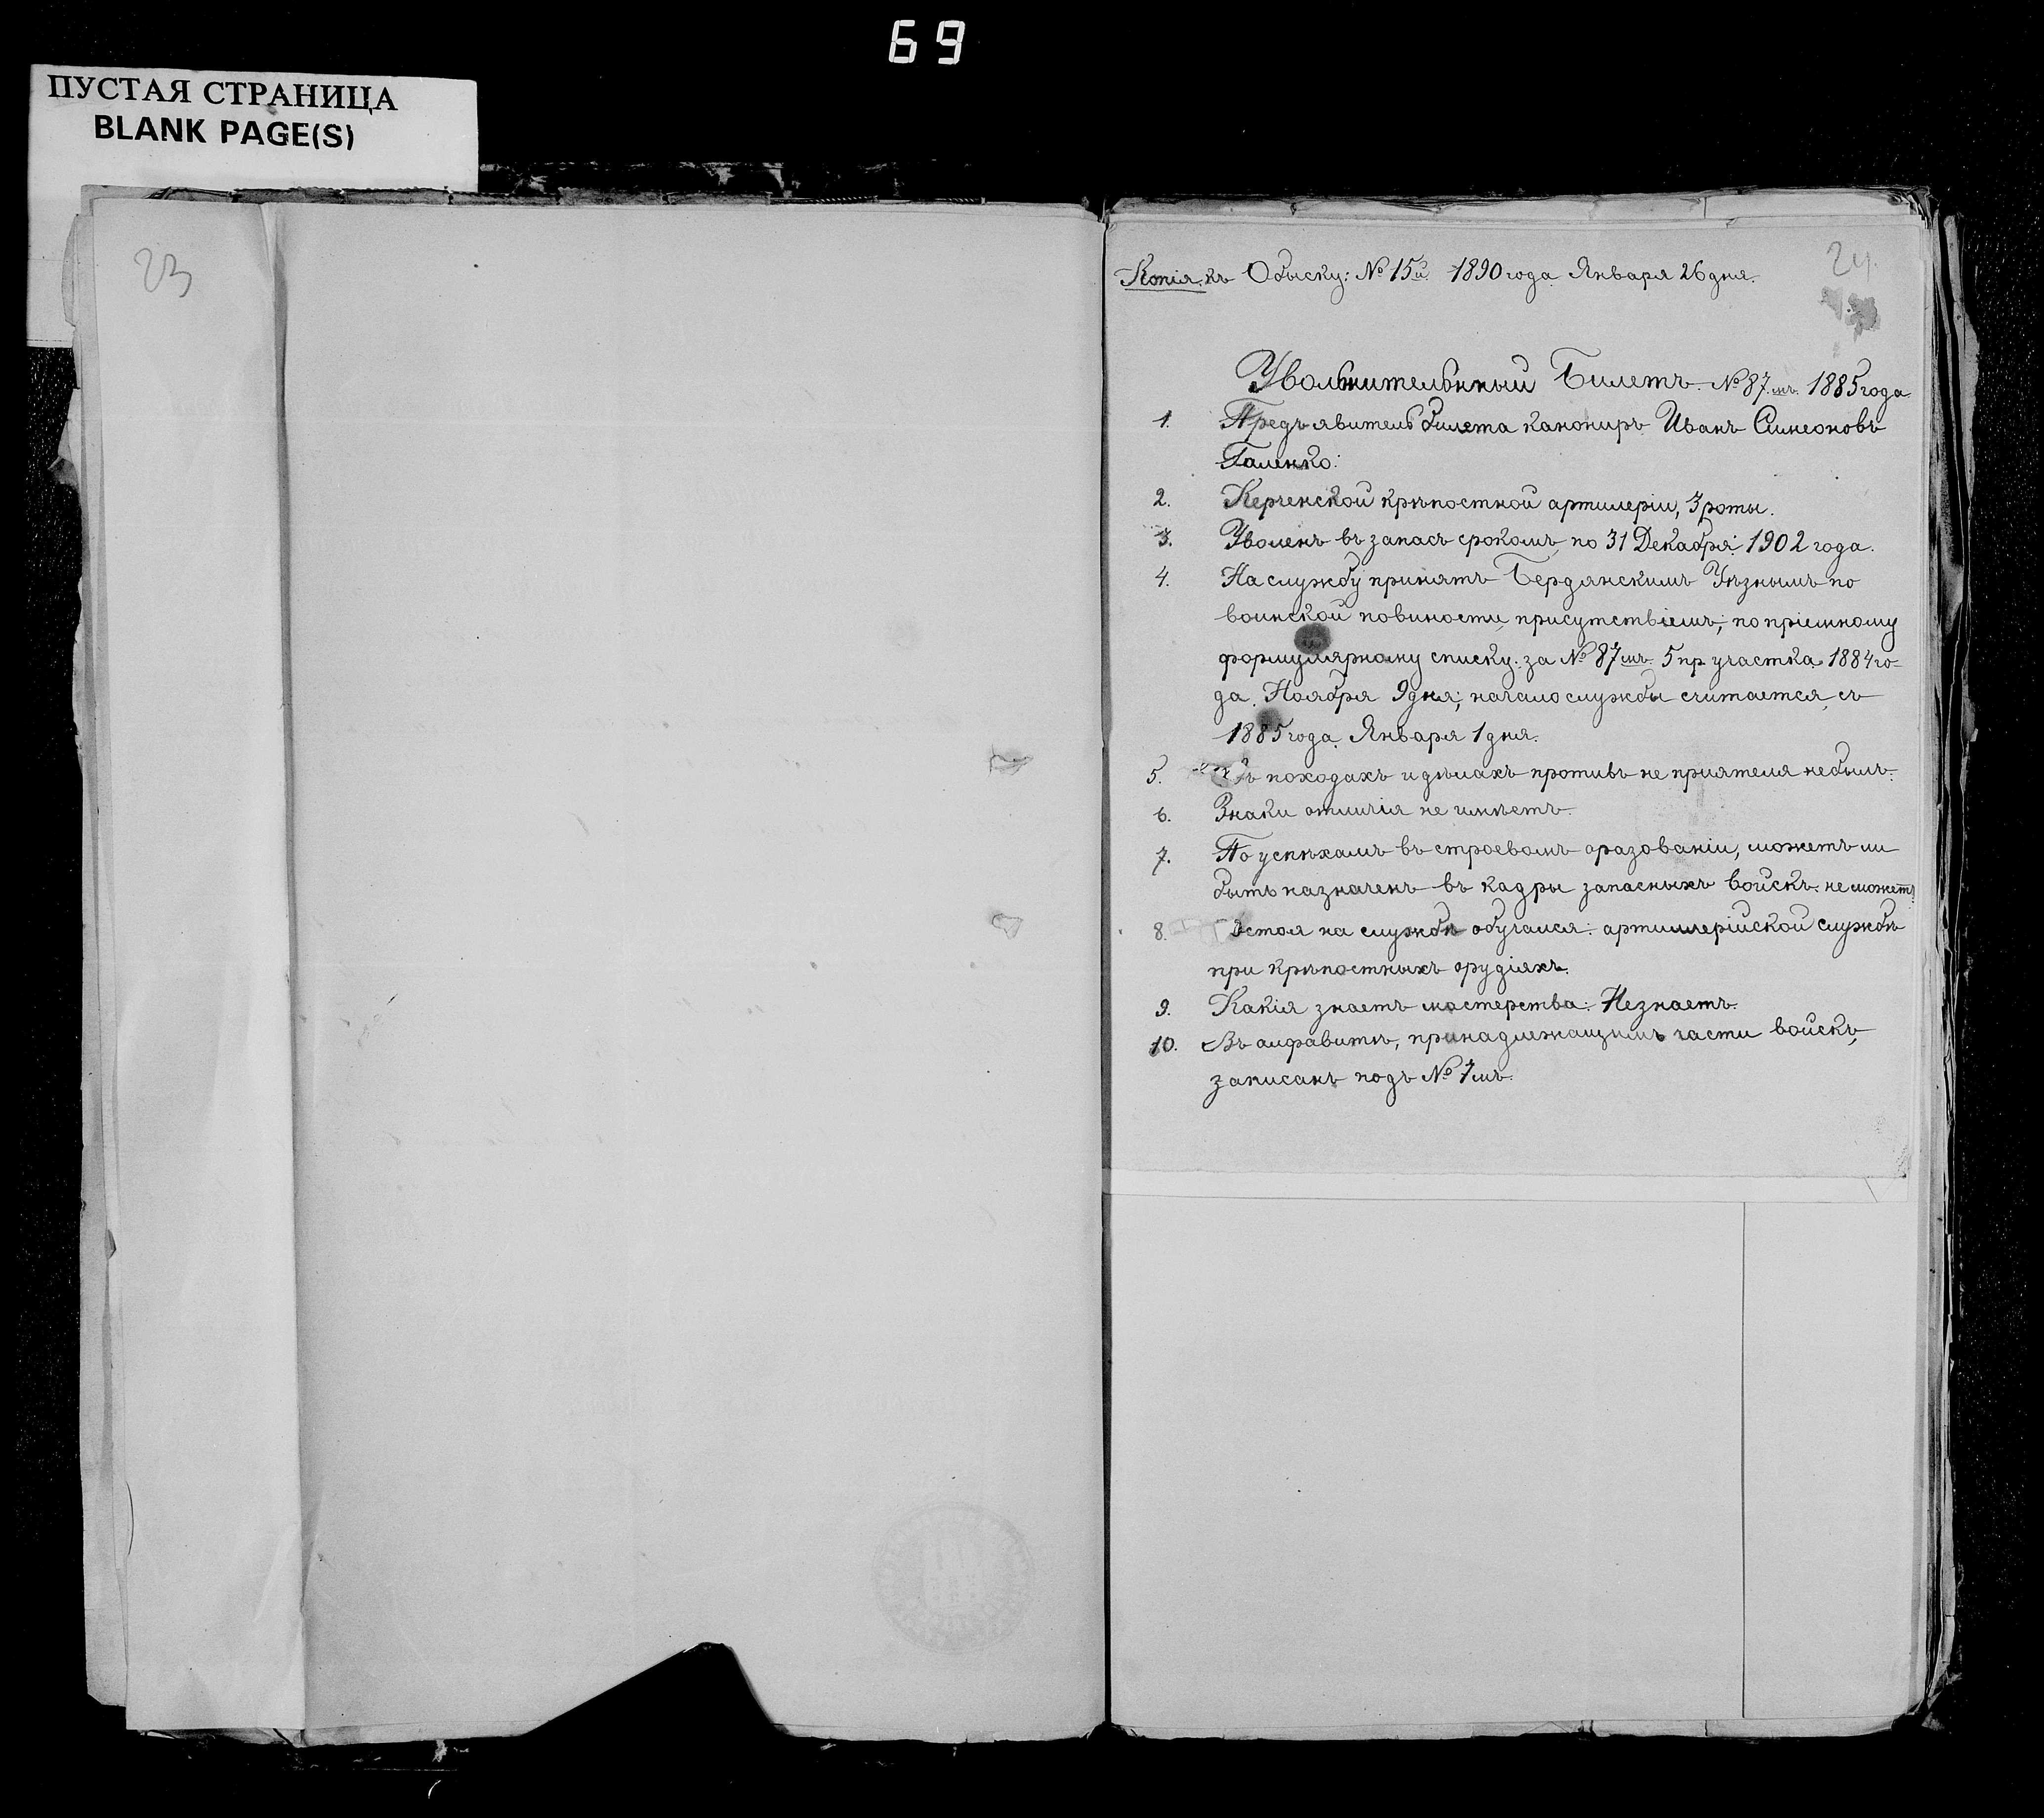 69
ПУСТАЯ СТРАНИЦА
BLANK PAGE(S)
23
24.
Копія. къ Обыску: № 15й. 1890 года Января 26 дня.
Увольнительный Билетъ. № 87.мъ. 1885 года
1. Предъявитель билета канониръ Иванъ Симеоновъ
Галенко:
2. Керченской крѣпостной артилеріи, 3 роты.
3. Уволенъ въ запасъ срокомъ по 31 Декабря: 1902 года.
4. На службу принятъ Бердянскимъ Уѣзнымъ по
воинской повиности присутствіемъ; по пріемному
формулярному списку: за № 87мъ. 5 пр участка 1884 го-
да. Ноября 9 дня; начало службы считается, съ
1885 года. Января 1 дня.
5. Въ походахъ и дѣлахъ противъ не приятеля небылъ.
6. Знаки отличія не имѣетъ.
7. По успѣхамъ въ строевомъ оразованіи, можетъ ли
быть назначенъ въ кадры запасныхъ войскъ. не можетъ.
8. Состоя на службѣ обучался: артиллерійской службѣ
при крѣпостныхъ орудіяхъ.
9. Какія знаетъ мастерства: Незнаетъ.
10. Въ алфавитѣ, принадлежащимъ части войскъ,
записанъ подъ № 7мъ.